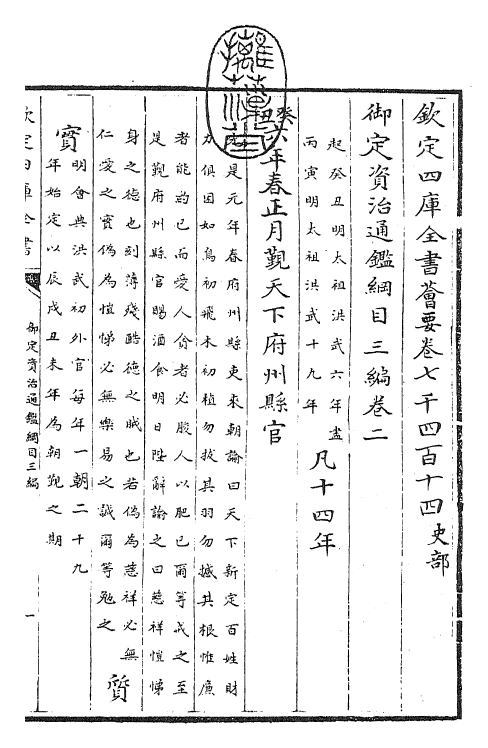 欽定四庫全書薈要卷七千四百十四史部
御定資治通鑑綱目三編卷二
起癸丑明太祖洪武六年盡
丙寅明太祖洪武十九年
凡十四年
癸丑
六年春正月覲天下府州縣官
是元年春府州縣吏來朝諭曰天下新定百姓財
力俱困如鳥初飛木初植勿拔其羽勿撼其根惟廉
者能約已而愛人貪者必朘人以肥已爾等戒之至
是覲府州縣官賜酒食明日陛辭諭之曰慈祥愷悌
身之德也刻薄殘酷德之賊也若偽為慈祥必無
仁愛之實偽為愷悌必無樂易之誠爾等勉之
質
實
明會典洪武初外官每年一朝二十九
年始定以辰戌丑未年為朝覲之期
欽定四庫全書
御定資治通鑑綱目三編
一